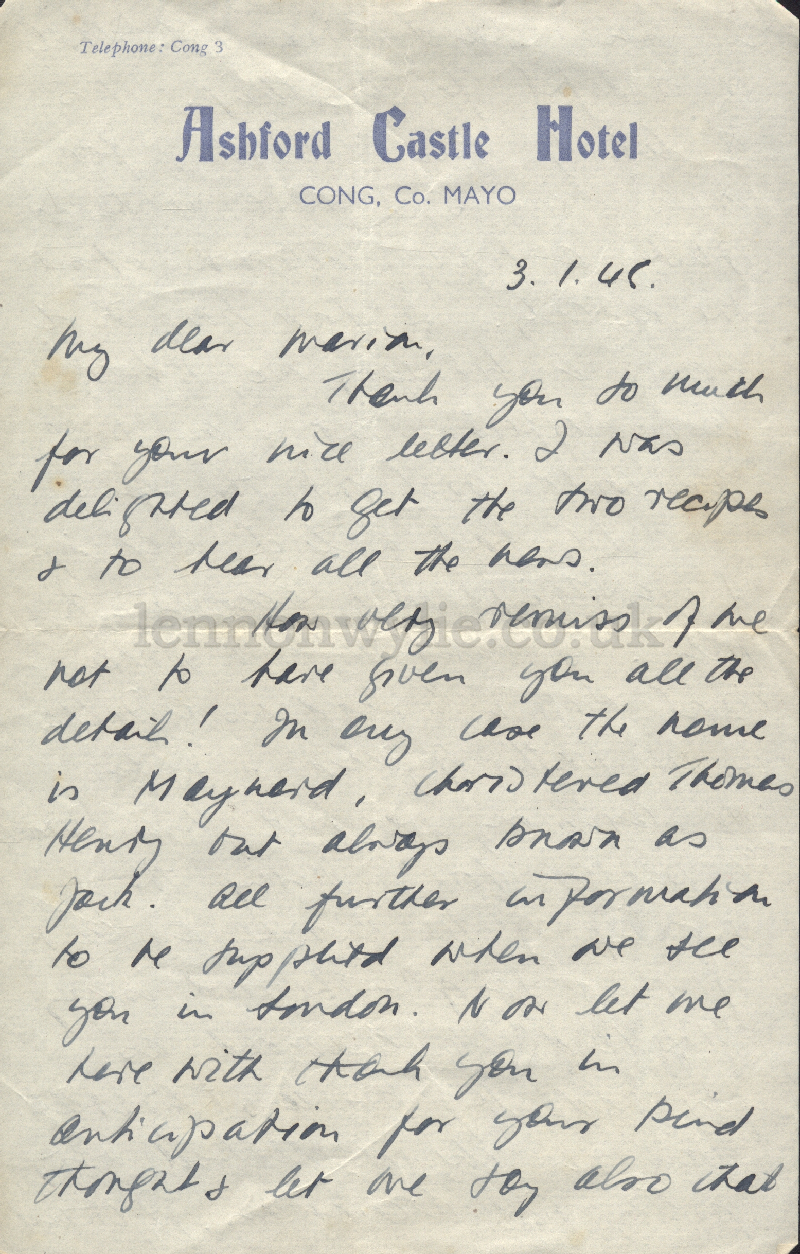 Telephone: Cong 3
Ashford Castle Hotel
CONG, Co. MAYO
3. 1. 48.
My dear Marion,
Thank you so much
for your nice letter. I was
delighted to get the two recipes
& to hear all the news.
How very remiss of me
not to have given you all the
details! In any case the name
is Maynard, christened Thomas
Henry but always known as
Jack. All further information
to be supplied when we see
you in London. Now let me
here with thank you in
anticipation for your kind
thoughts & let me say also that
lennonwylie.co.uk